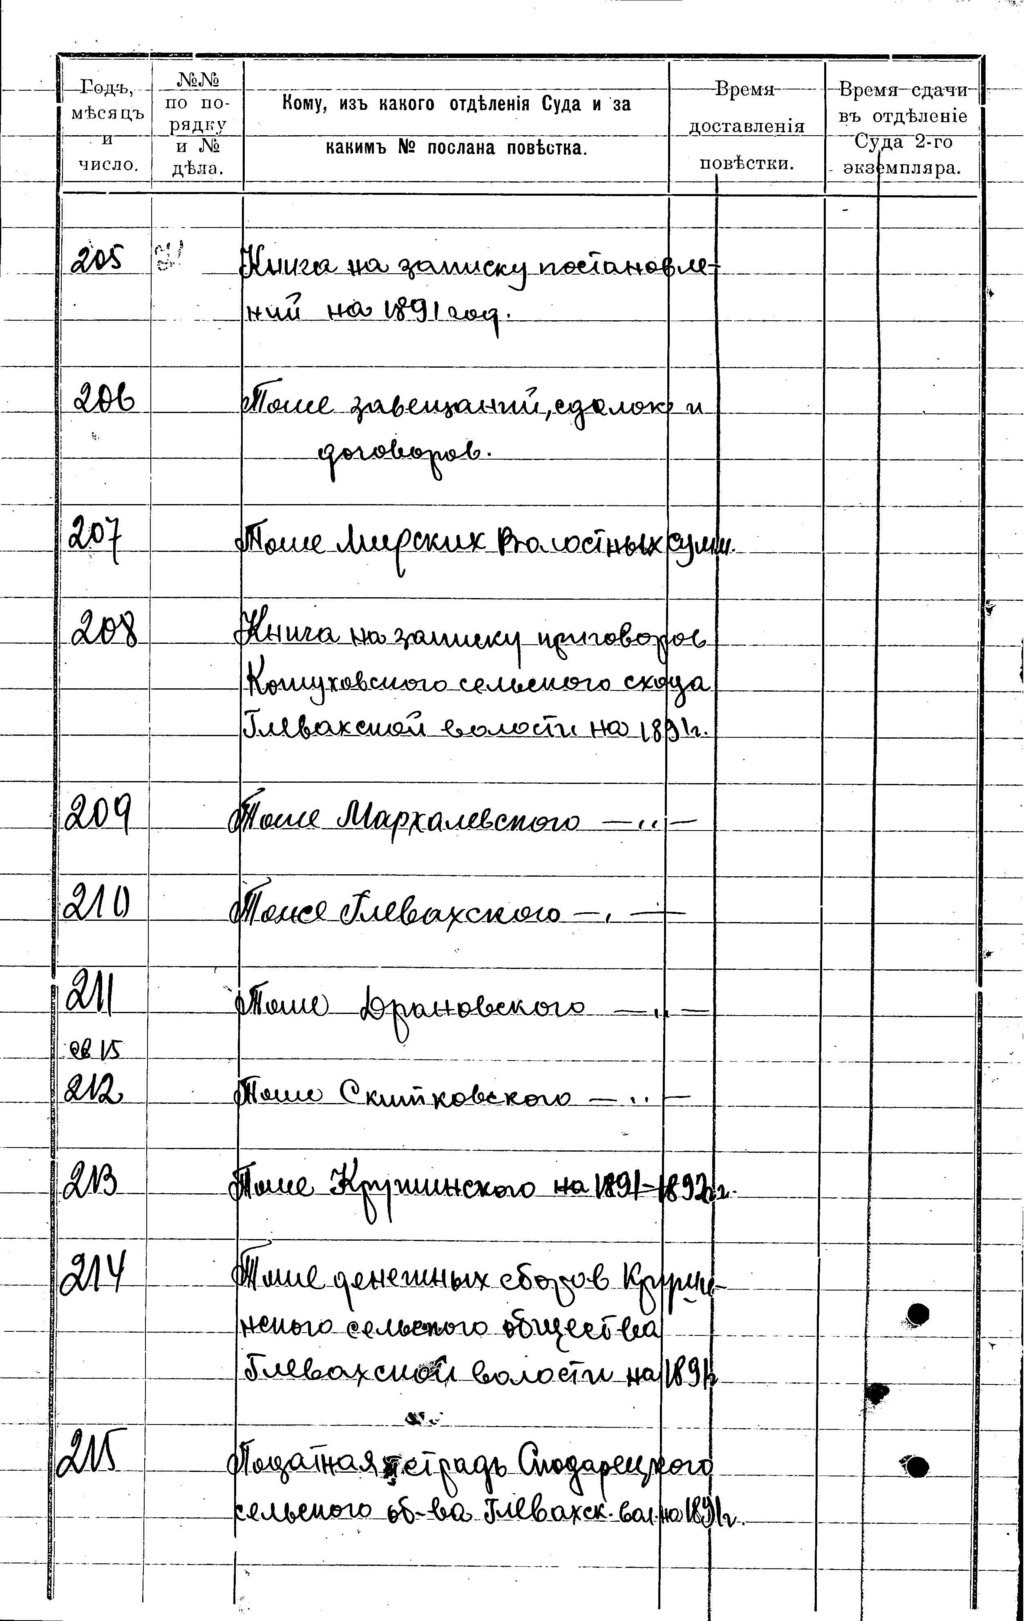 Годъ,
мѣсяцъ
и
число.
№№
по по-
рядку
и №
дѣла.
Кому, изъ какого отдѣленія Суда и за
какимъ № послана повѣстка.
Время
доставленія
повѣстки.
Время сдачи
въ отдѣленіе
Суда 2-го
экземпляра.
205 Книга на записку постановле-
ний на 1891 год.
206 Тоже завещаний, сделок и
договоров.
207 Тоже Мирских Волостных сумм.
208 Книга на записку приговоров
Кожуховского сельского схода
Глевахской волости на 1891г.
209 Тоже Мархалевского —"—
210 Тоже Глевахского —"—
211 Тоже Драновского —"—
св 15
212 Тоже Скитковского —"—
213 Тоже Кружинского на 1891-1892гг.
214 Тоже денежных сборов Кружи-
нского сельского общества
Глевахской волости на 1891г
215 Податная тетрадь
сельского об-ва Глевахск. вол. на 1891г.